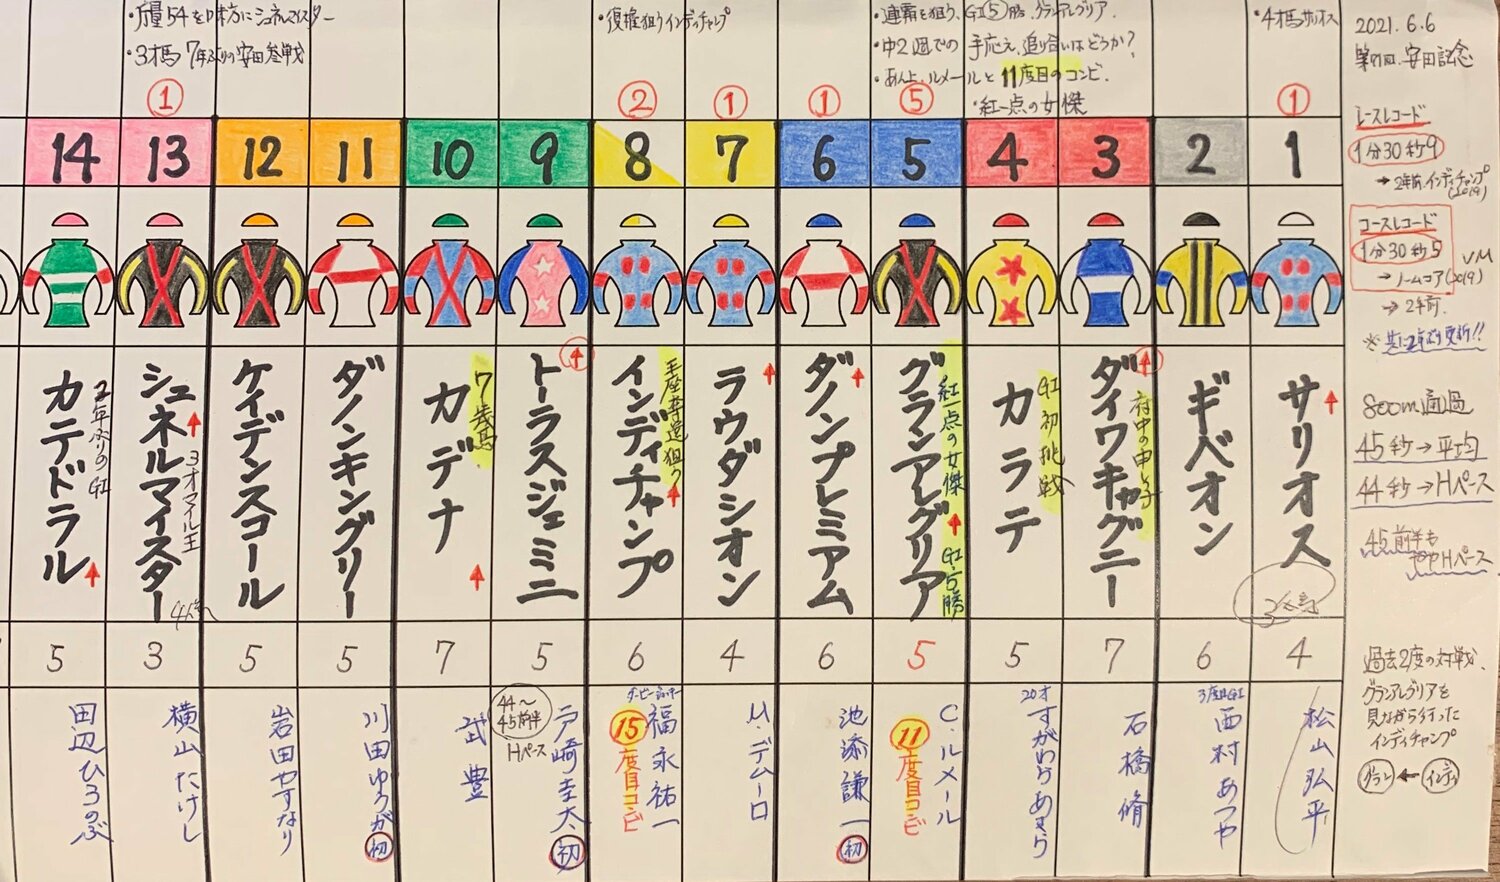 2021.6.6
第71回.安田記念
レースレコード
1分30秒9
→2年前.インディチャンプ
(2019)
コースレコード
1分30秒5
VM
→ノームコア(2019)
→2年前.
※共に2年ぶり更新!!
800m通過
45秒→平均
44秒→Hペース
45前半も
ややHペース
過去2度の対戦、
グランアレグリアを
見ながら行った
インディチャンプ
グラン←インディ
・4才馬サリオス
①
1
サリオス
4
松山弘平
2
ギベオン
6
3度目GI
西村あつや
3
ダイワキャグニー
府中の申し子
7
石橋脩
4
カラテ
GI初挑戦
5
20才
すがわらあきら
・連覇を狙う、GI⑤勝.グランアレグリア.
・中2週での手応え、追り合いはどうか?
・あん上.ルメールと11度目のコンビ.
・紅一点の女傑
⑤
5
グランアレグリア
紅一点の女傑
GI.5勝
5
C.ルメール
11度目コンビ
①
6
ダノンプレミアム
6
池添謙一
初
①
7
ラウダシオン
4
M.デムーロ
・復権狙うインディチャンプ
②
8
インディチャンプ
王座奪還狙う
6
ダービージョッキー
福永祐一
15度目コンビ
9
トーラスジェミニ
5
44〜
45前半
Hペース
戸崎圭太
初
10
カデナ
7歳馬
7
武豊
11
ダノンキングリー
5
川田ゆうが
初
12
ケイデンスコール
5
岩田やすなり
・斤量54を味方にシュネルマイスター
・3才馬7年ぶりの安田参戦
①
13
シュネルマイスター
3才マイル王
3
横山たけし
14
カテドラル
2年ぶりのGI
5
田辺ひろのぶ